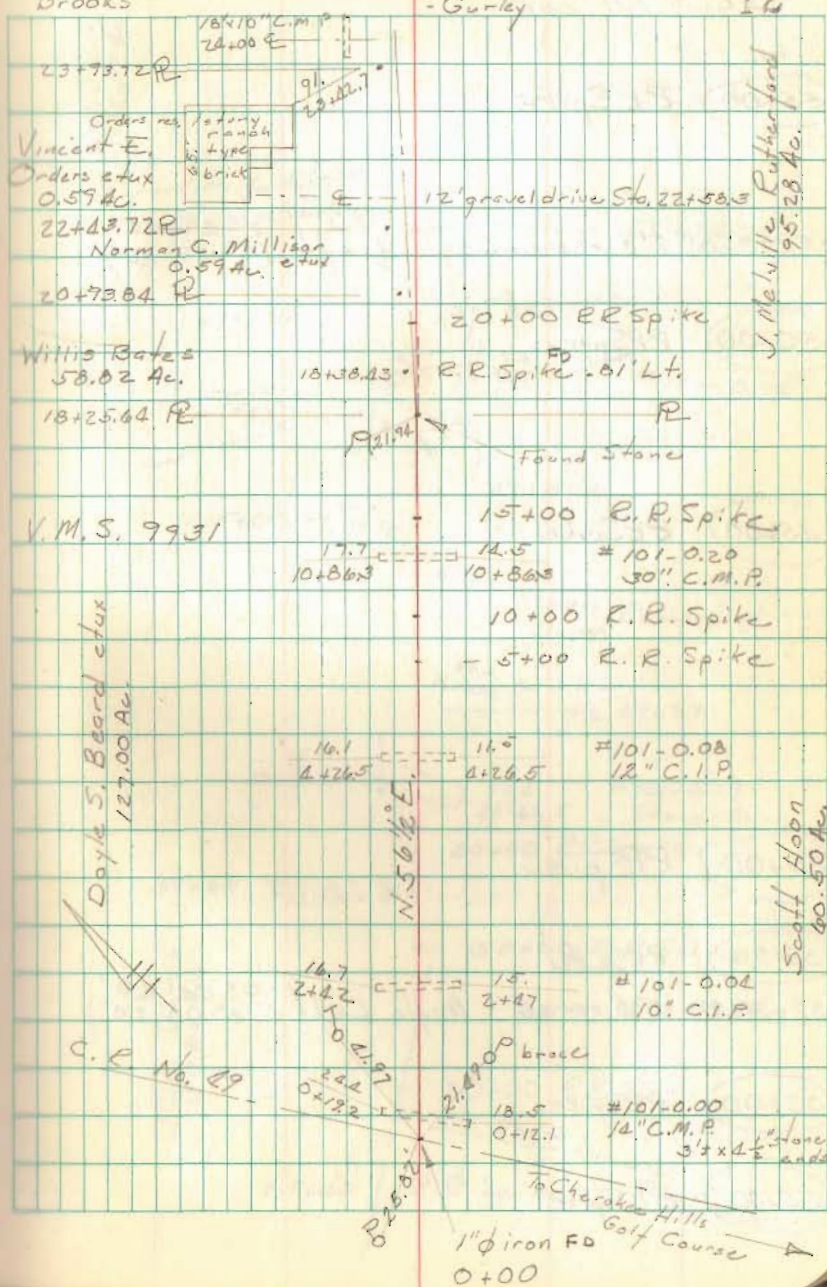 Brooks
- Gurley
18'x10" C.M.P
24+00 ℄
23+93.72 PL
91.
23+42.7
Orders res.
1 story
ranch
type
brick
Vincent E.
Orders etux
0.59 Ac.
℄
12' gravel drive Sta. 22+58.3
22+43.72 PL
Norman C. Milliser
0.59 Ac. etux
20+93.84 PL
J. Melville Rutherford
95.28 Ac.
20+00 RR Spike
Willis Bates
58.82 Ac.
18+38.43
R.R Spike FD .81' Lt.
18+25.64 PL
PL
21.94
Found Stone
15+00 R.R. Spike
V.M.S. 9931
17.7
10+86.3
14.5
10+86.3
# 101-0.20
30" C.M.P.
10+00 R.R. Spike
- 5+00 R.R. Spike
Doyle S. Beard etux
127.00 Ac.
16.1
4+26.5
11.5
4+26.5
#101-0.08
12" C.I.P.
N.56½°E.
Scott Hoon
60.50 Ac.
16.7
2+42
15.
2+47
# 101-0.04
10" C.I.P.
41.97
C.R. No. 49
24.4
0+19.2
21.49 P brace
18.5
0-12.1
#101-0.00
14" C.M.P.
3'± x 4½" stone
ends
25.82'
To Cherokee Hills
Golf Course
1"ϕ iron FD
0+00